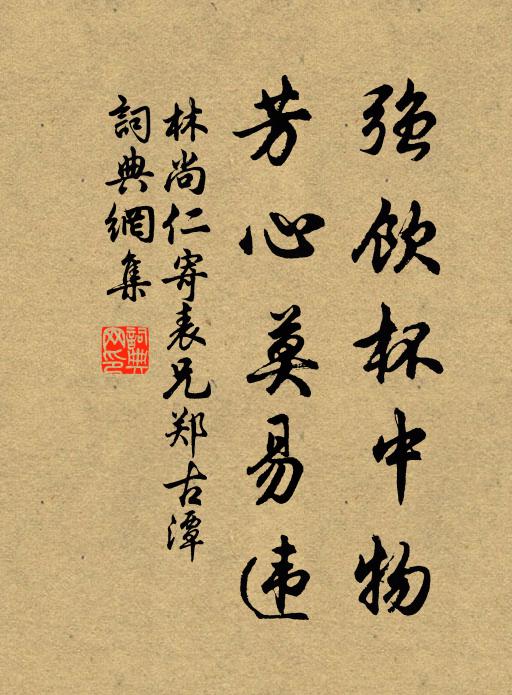 强饮杯中物
芳心莫易违
林尚仁寄表兄郑古潭
詞典網集
詞典
网印